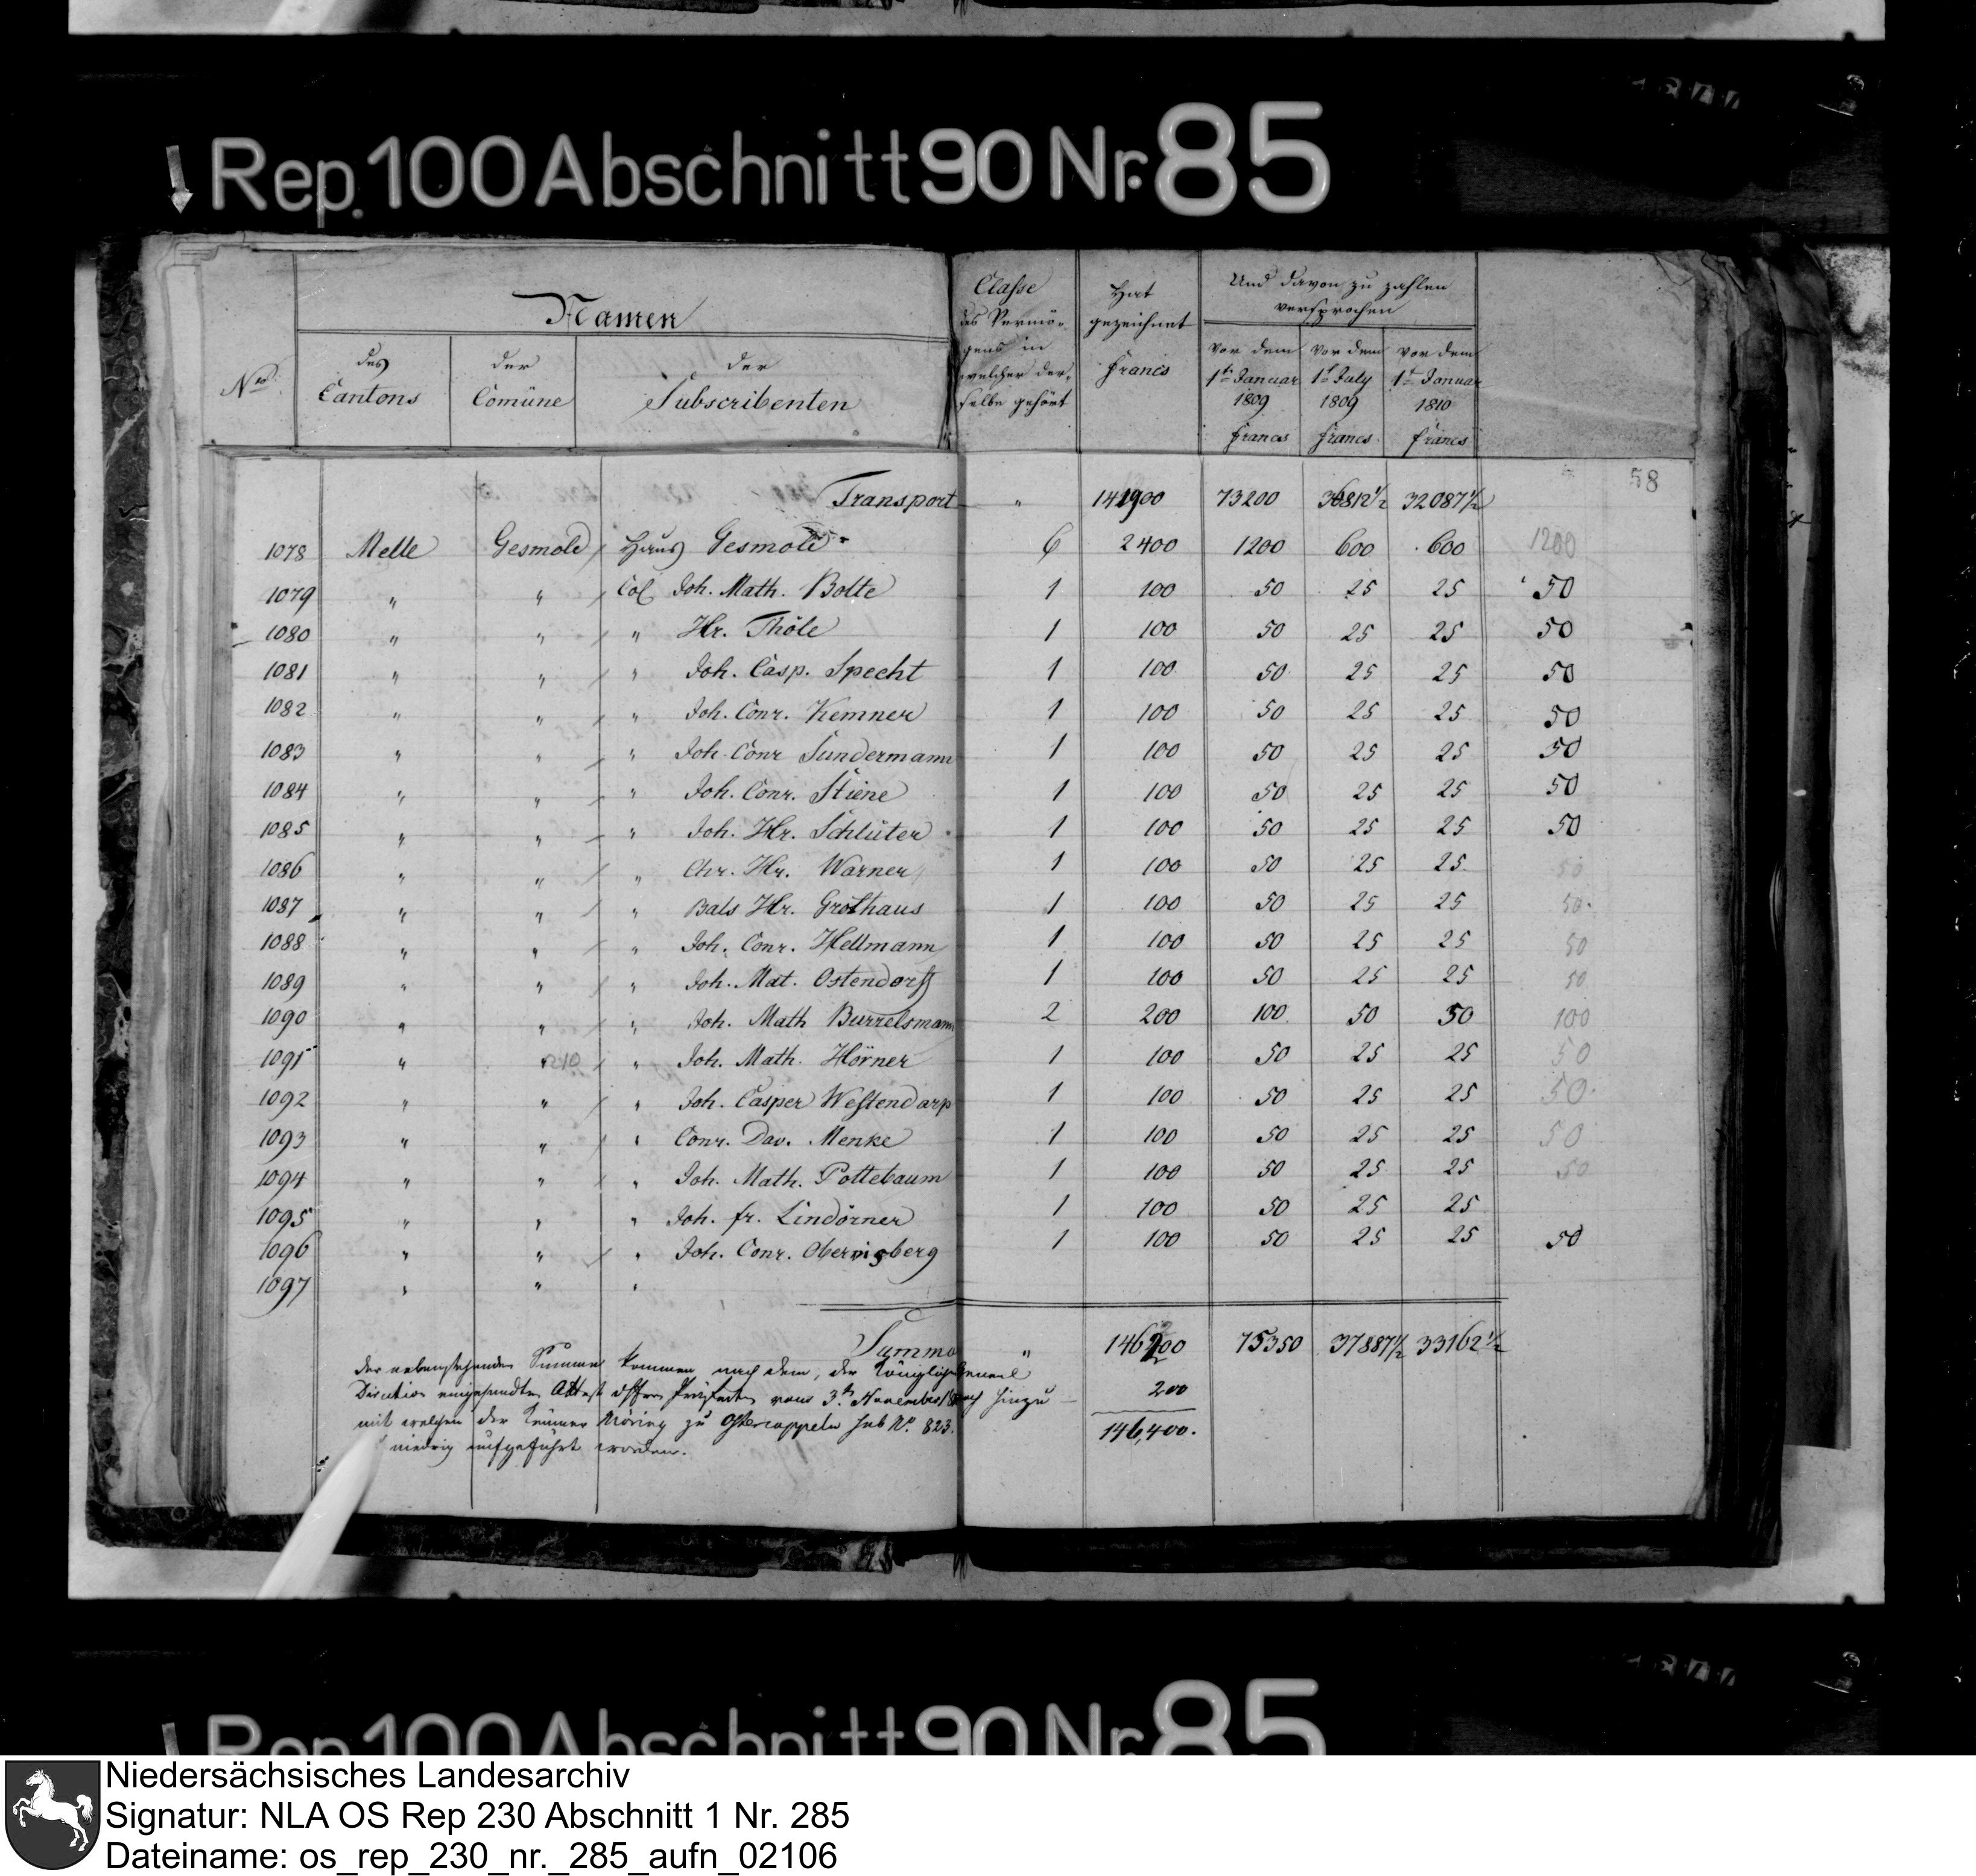 Rep. 100 Abschnitt 90 Nr. 85
Namen
Classe des Vermö- gens in welcher der- selbe gehört
Hat gezeichnet
Francs
Und davon zu zahlen versprochen
Nro
des Cantons
der Comüne
der Subscribenten
vor dem 1t Januar 1809 Francs
vor dem 1t July 1809 Francs
vor dem 1t Januar 1810 Francs
58
Transport " 141900 73200 36812 1/2 32087 1/2
1078 Melle Gesmold Haus Gesmold 6 2400 1200 600 600 1200
1079 " " Col Joh. Math. Bolte 1 100 50 25 25 50
1080 " " " Hr. Thöle 1 100 50 25 25 50
1081 " " " Joh. Casp. Specht 1 100 50 25 25 50
1082 " " " Joh. Conr. Kemner 1 100 50 25 25 50
1083 " " " Joh. Conr Sundermann 1 100 50 25 25 50
1084 " " " Joh. Conr. Stiene 1 100 50 25 25 50
1085 " " " Joh. Hr. Schlüter 1 100 50 25 25 50
1086 " " " Chr. Hr. Warner 1 100 50 25 25 50
1087 " " " Bals Hr. Grothaus 1 100 50 25 25 50
1088 " " " Joh. Conr. Hellmann 1 100 50 25 25 50
1089 " " " Joh. Mat. Ostendorff 1 100 50 25 25 50
1090 " " " Joh. Math Burrelsmann 2 200 100 50 50 100
1091 " " " Joh. Math. Hörner 1 100 50 25 25 50
1092 " " " Joh. Casper Westendarp 1 100 50 25 25 50
1093 " " " Conr. Dav. Menke 1 100 50 25 25 50
1094 " " " Joh. Math. Pottebaum 1 100 50 25 25 50
1095 " " " Joh. fr. Lindörner 1 100 50 25 25
1096 " " " Joh. Conr. Obernisberg 1 100 50 25 25 50
1097 " " "
Summa " 146200 75350 37887 1/2 33162 1/2
Der nebenstehenden Summe kommen nach dem, der Königlichen General
Direction eingesandten Attest des Präfecten vom 3t November noch hinzu 200
mit welchen der Möring zu Ostercappeln sub No. 823.
niedrig aufgeführt worden. 146,400.
Rep. 100 Abschnitt 90 Nr. 85
Niedersächsisches Landesarchiv
Signatur: NLA OS Rep 230 Abschnitt 1 Nr. 285
Dateiname: os_rep_230_nr._285_aufn_02106